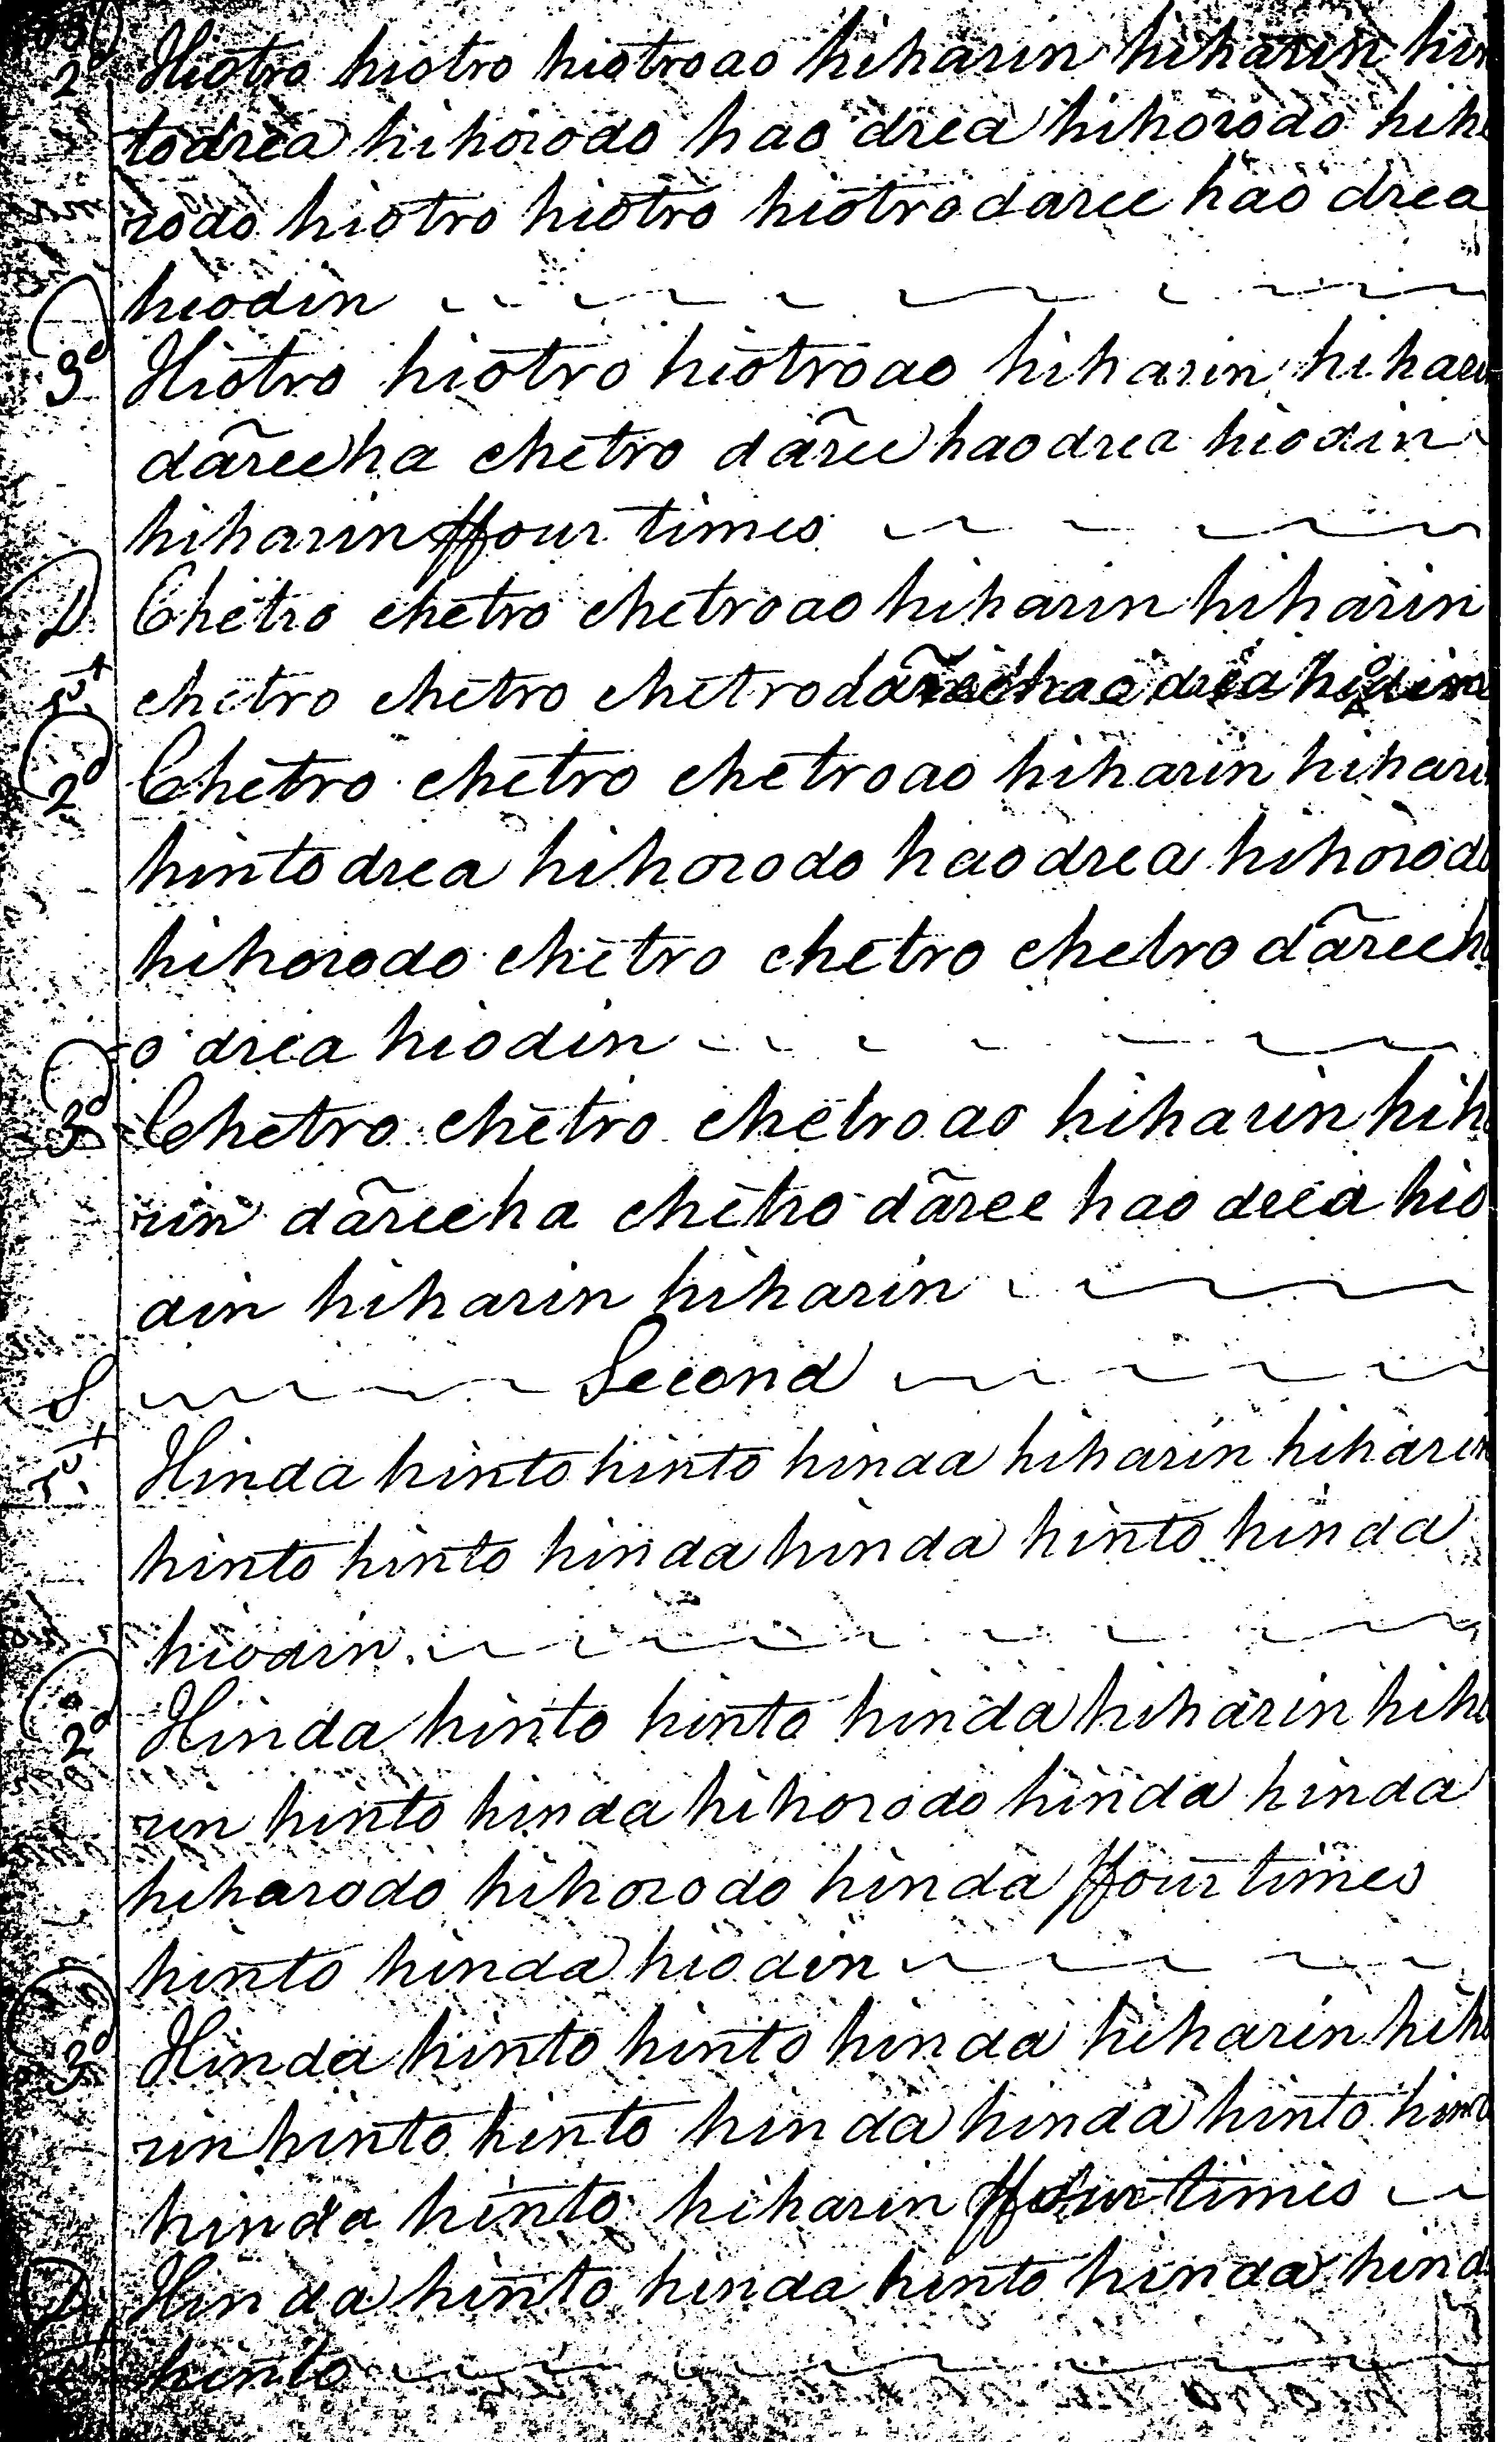 2d Hiotro hiotro hiotroao hiharin hiharin hin
todrea hihorodo hao drea hihorodo hiho
rodo hiotro hiotro hiotrodaree hao drea
hiodin
3d Hiotro hiotro hiotroao hiharin hihari
dãreeha chetro dãree hao drea hiodin
hiharin ffour times
D Chetro chetro chetroao hiharin hiharin
1st chetro chetro chetrodãreehao drea hiodin
2d Chetro chetro chetroao hiharin hihari
hintodrea hihorodo haodrea hihorodo
hihorodo chetro chetro chetro dãreeha
o drea hiodin
3d Chetro chetro chetroao hiharin hiha
rin dãreeha chetro dãree hao drea hio
din hiharin hiharin
S Second
1st Hinda hinto hinto hinda hiharin hiharin
hinto hinto hinda hinda hinto hinda
hiodin
2d Hinda hinto hinto hinda hiharin hiha
rin hinto hinda hihorodo hinda hinda
hiharodo hihorodo hinda ffour times
hinto hinda hiodin
3d Hinda hinto hinto hinda hiharin hiha
rin hinto hinto hinda hinda hinto hinto
hinda hinto hiharin ffour times
D Hinda hinto hinda hinto hinda hinda
hinto